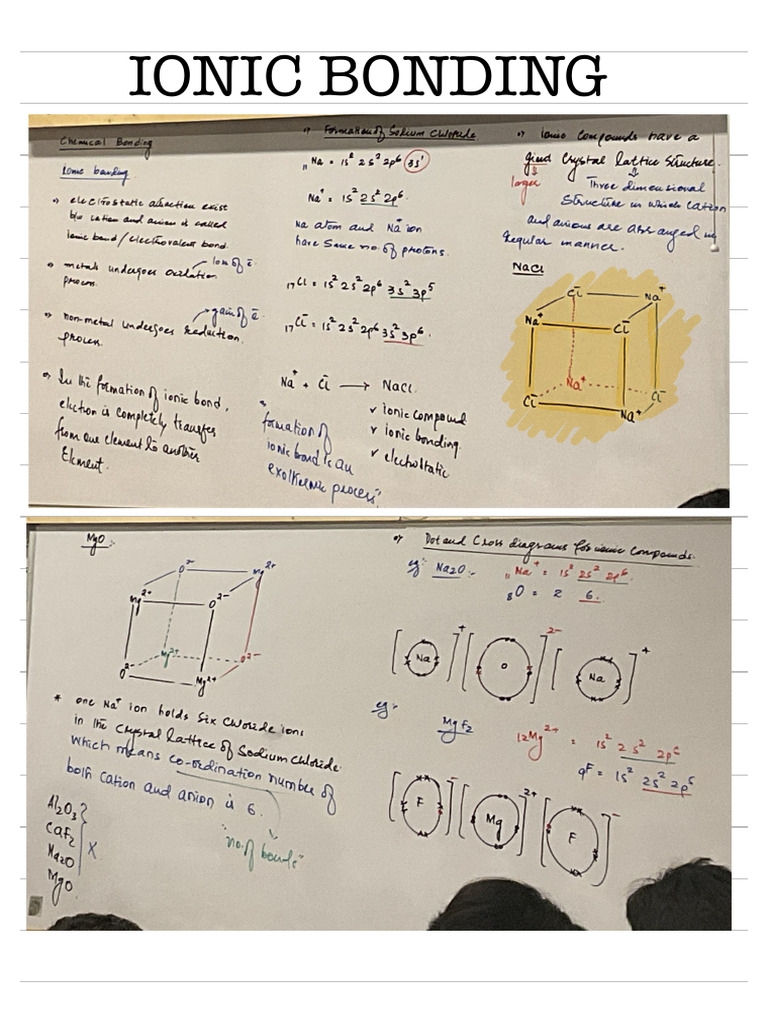 IONIC BONDING
Chemical Bonding
Ionic bonding
electrostatic attraction exist
b/w cation and anion is called
ionic bond/electrovalent bond.
loss of e⁻
metals undergoes oxidation
process.
gain of e⁻
non-metal undergoes reduction
process.
In the formation of ionic bond,
electron is completely transfer
from one element to another
Element.
Formation of Sodium Chloride
₁₁Na = 1s² 2s² 2p⁶ 3s¹
Na⁺ = 1s² 2s² 2p⁶.
Na atom and Na⁺ ion
have same no. of protons.
₁₇Cl = 1s² 2s² 2p⁶ 3s² 3p⁵
₁₇Cl⁻ = 1s² 2s² 2p⁶ 3s² 3p⁶.
Na⁺ + Cl⁻ → NaCl
✓ ionic compound
✓ ionic bonding
✓ electrostatic
"formation of
ionic bond is an
exothermic process"
Ionic compounds have a
giant Crystal lattice Structure.
larger
Three dimensional
Structure in which cation
and anions are arranged in
regular manner.
NaCl
Cl⁻ Na⁺
Na⁺ Cl⁻
Na⁺ Cl⁻
Cl⁻ Na⁺
MgO :-
O²⁻ Mg²⁺
Mg²⁺ O²⁻
Mg²⁺ O²⁻
O²⁻ Mg²⁺
* one Na⁺ ion holds six chloride ions
in the crystal lattice of Sodium Chloride
which means co-ordination number of
both cation and anion is 6.
"no. of bonds"
Al₂O₃
CaF₂
Na₂O X
MgO
Dot and Cross diagrams for ionic Compounds.
eg:- Na2O :- ₁₁Na⁺ = 1s² 2s² 2p⁶.
₈O = 2 6.
[Na]⁺ [O]²⁻ [Na]⁺
eg:- MgF₂ 12Mg²⁺ = 1s² 2s² 2p⁶
9F = 1s² 2s² 2p⁵
[F]⁻ [Mg]²⁺ [F]⁻